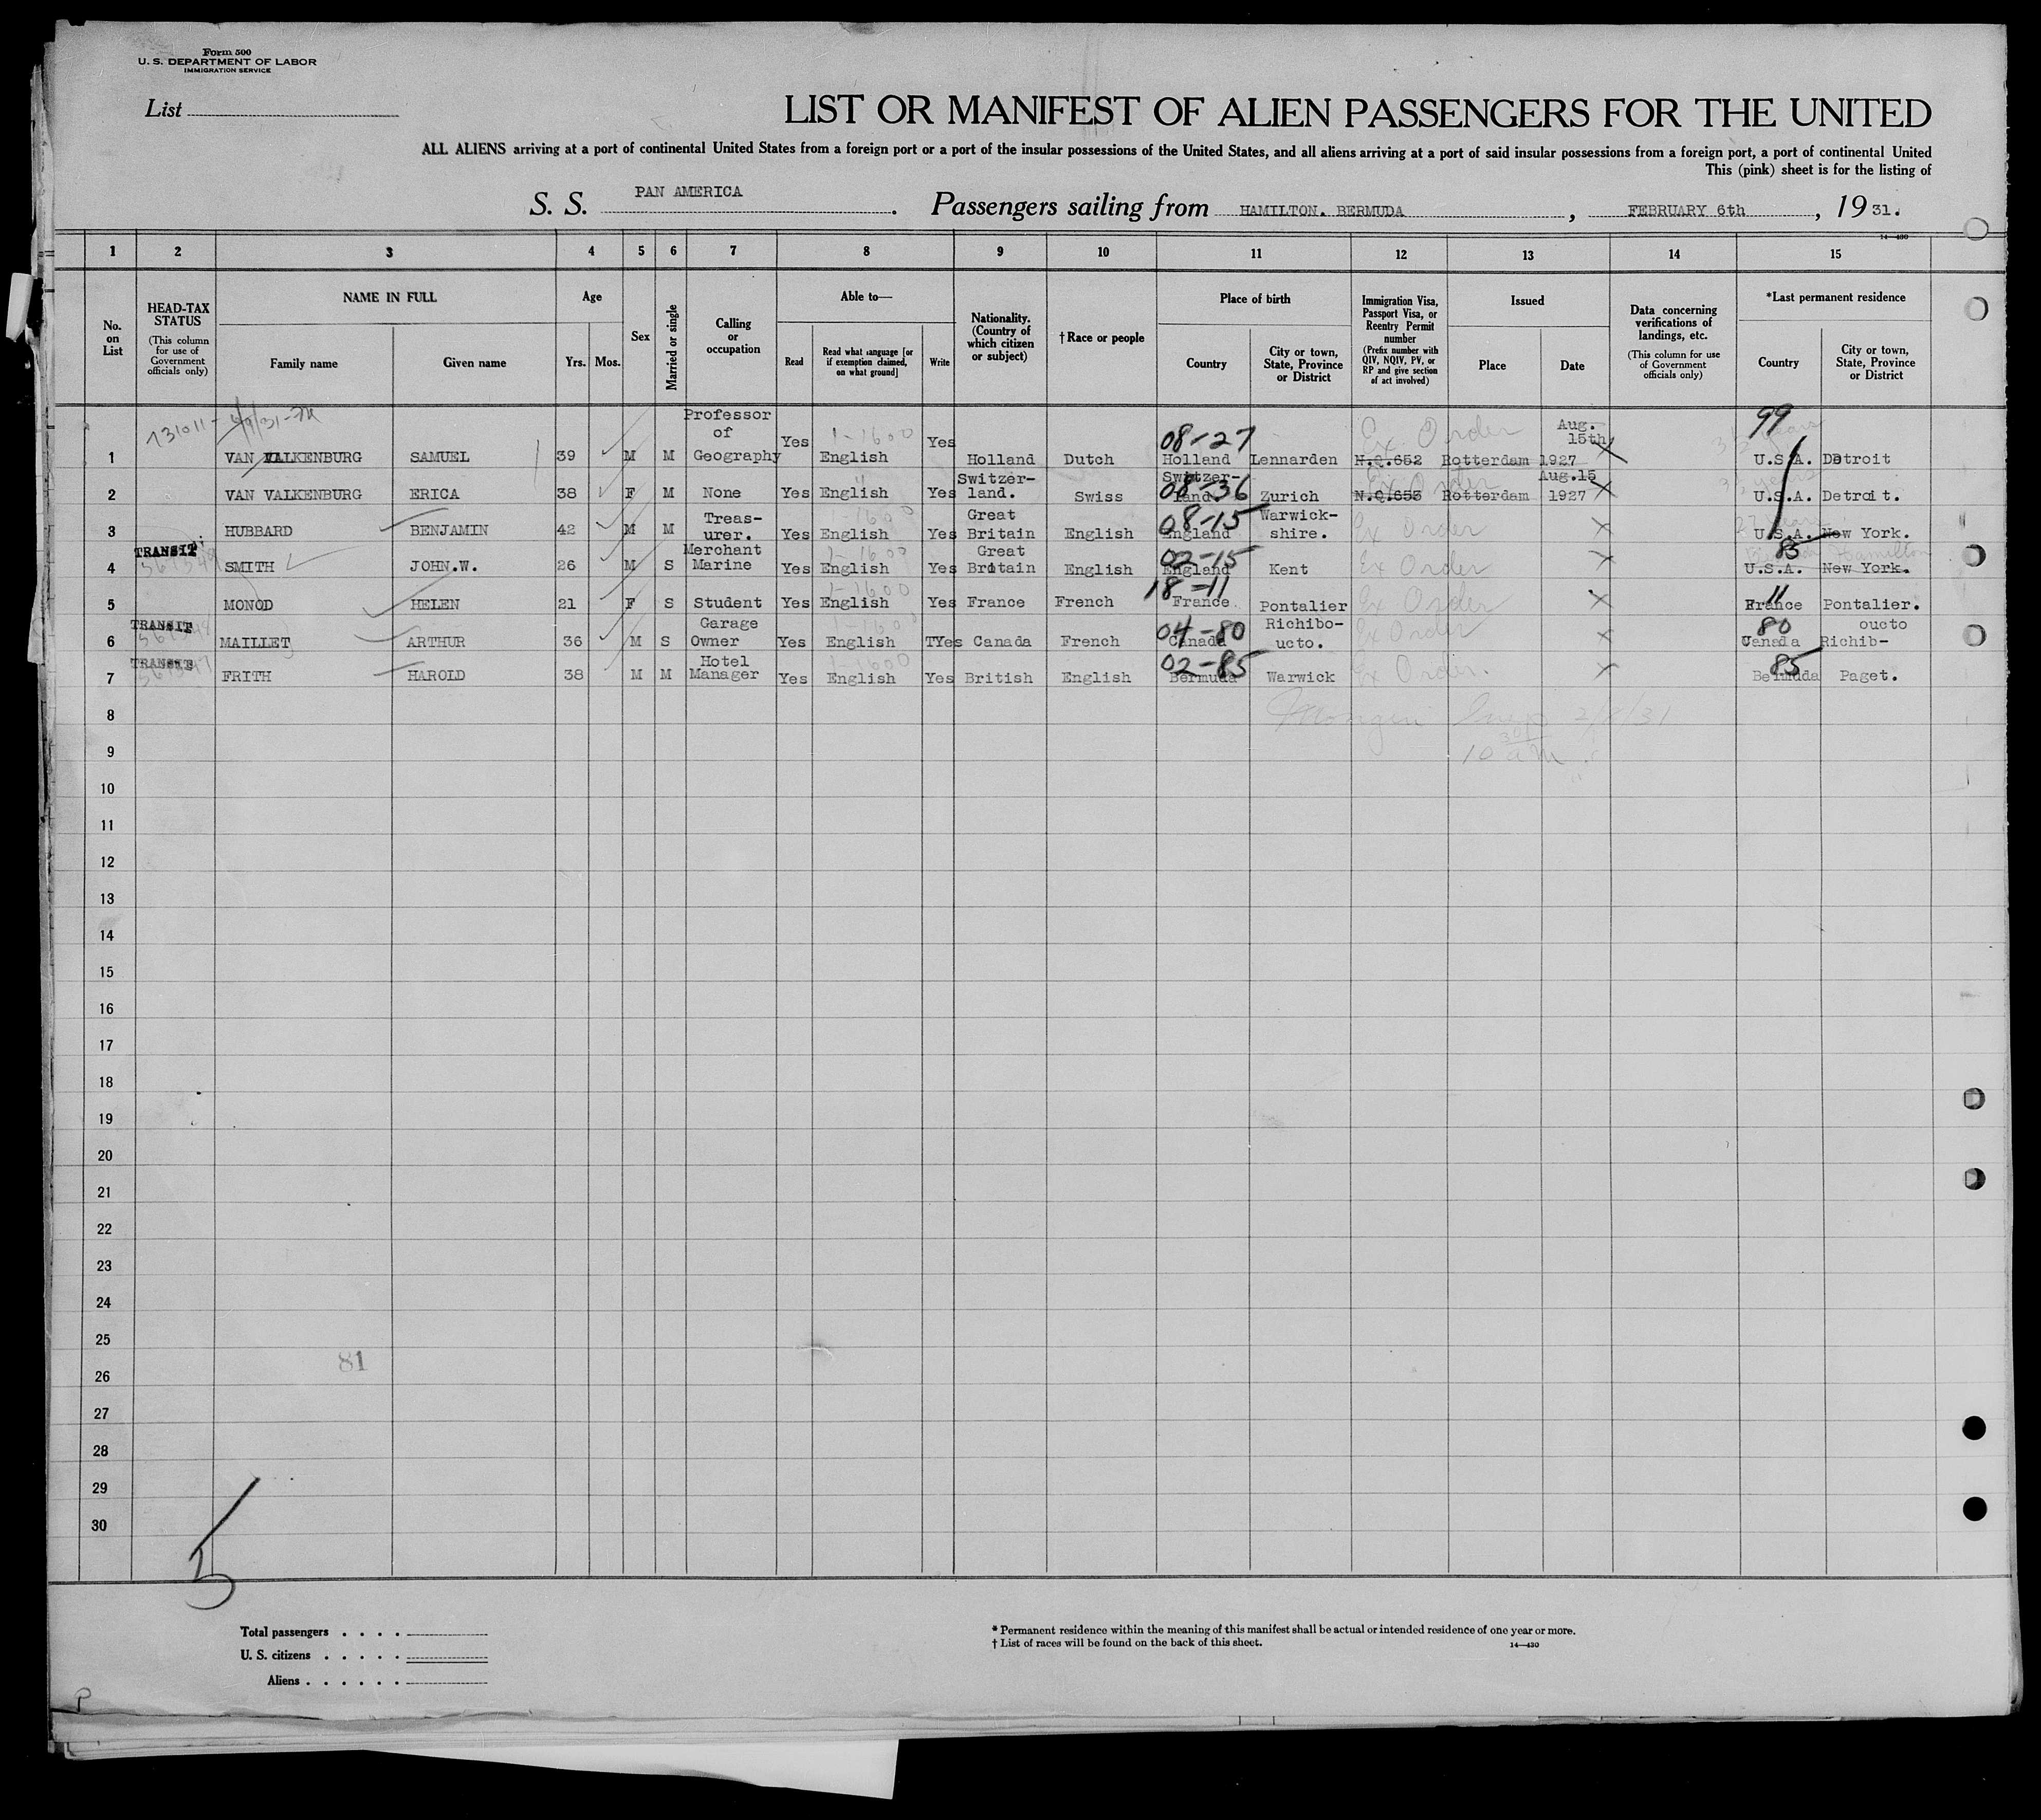 Form 500
U. S. DEPARTMENT OF LABOR
IMMIGRATION SERVICE
List
LIST OR MANIFEST OF ALIEN PASSENGERS FOR THE UNITED
ALL ALIENS arriving at a port of continental United States from a foreign port or a port of the insular possessions of the United States, and all aliens arriving at a port of said insular possessions from a foreign port, a port of continental United
This (pink) sheet is for the listing of
S. S. PAN AMERICA. Passengers sailing from HAMILTON. BERMUDA, FEBRUARY 6th, 1931.
14—430
1 2 3 4 5 6 7 8 9 10 11 12 13 14 15
No. on List
HEAD-TAX STATUS
(This column for use of Government officials only)
NAME IN FULL
Family name Given name
Age
Yrs. Mos.
Sex
Married or single
Calling or occupation
Able to—
Read
Read what language [or if exemption claimed, on what ground]
Write
Nationality. (Country of which citizen or subject)
† Race or people
Place of birth
Country
City or town, State, Province or District
Immigration Visa, Passport Visa, or Reentry Permit number
(Prefix number with QIV, NQIV, PV, or RP and give section of act involved)
Issued
Place Date
Data concerning verifications of landings, etc.
(This column for use of Government officials only)
*Last permanent residence
Country
City or town, State, Province or District
731011- 4/9/31-M
1 VAN VALKENBURG SAMUEL 39 M M Professor of Geography Yes 1-1600 English Yes Holland Dutch 08-27 Holland Lennarden Ex Order N.Q.652 Rotterdam Aug. 15th 1927 99 U.S.A. Detroit
2 VAN VALKENBURG ERICA 38 F M None Yes English Yes Switzer-land. Swiss 08-36 Switzer-land. Zurich Ex Order N.Q.653 Rotterdam Aug.15 1927 U.S.A. Detroit.
3 HUBBARD BENJAMIN 42 M M Treas-urer. Yes 1-1600 English Yes Great Britain English 08-15 England Warwick-shire. Ex Order U.S.A. New York.
4 TRANSIT SMITH JOHN.W. 26 M S Merchant Marine Yes 1-1600 English Yes Great Britain English 02-15 England Kent Ex Order 85 Hamilton U.S.A. New York.
5 MONOD HELEN 21 F S Student Yes 1-1600 English Yes France French 18-11 France. Pontalier Ex Order 11 France Pontalier.
6 TRANSIT MAILLET ARTHUR 36 M S Garage Owner Yes 1-1600 English TYes Canada French 04-80 Canada Richibo-ucto. Ex Order 80 Canada Richib-oucto
7 TRANSIT FRITH HAROLD 38 M M Hotel Manager Yes 1-1600 English Yes British English 02-85 Bermuda Warwick Ex Order. 85 Bermuda Paget.
8 Insp 2/8/31
9 10 30 am
10
11
12
13
14
15
16
17
18
19
20
21
22
23
24
25
81
26
27
28
29
30
5
Total passengers . . . .
U. S. citizens . . . . .
Aliens . . . . . .
* Permanent residence within the meaning of this manifest shall be actual or intended residence of one year or more.
† List of races will be found on the back of this sheet.
14—430
P